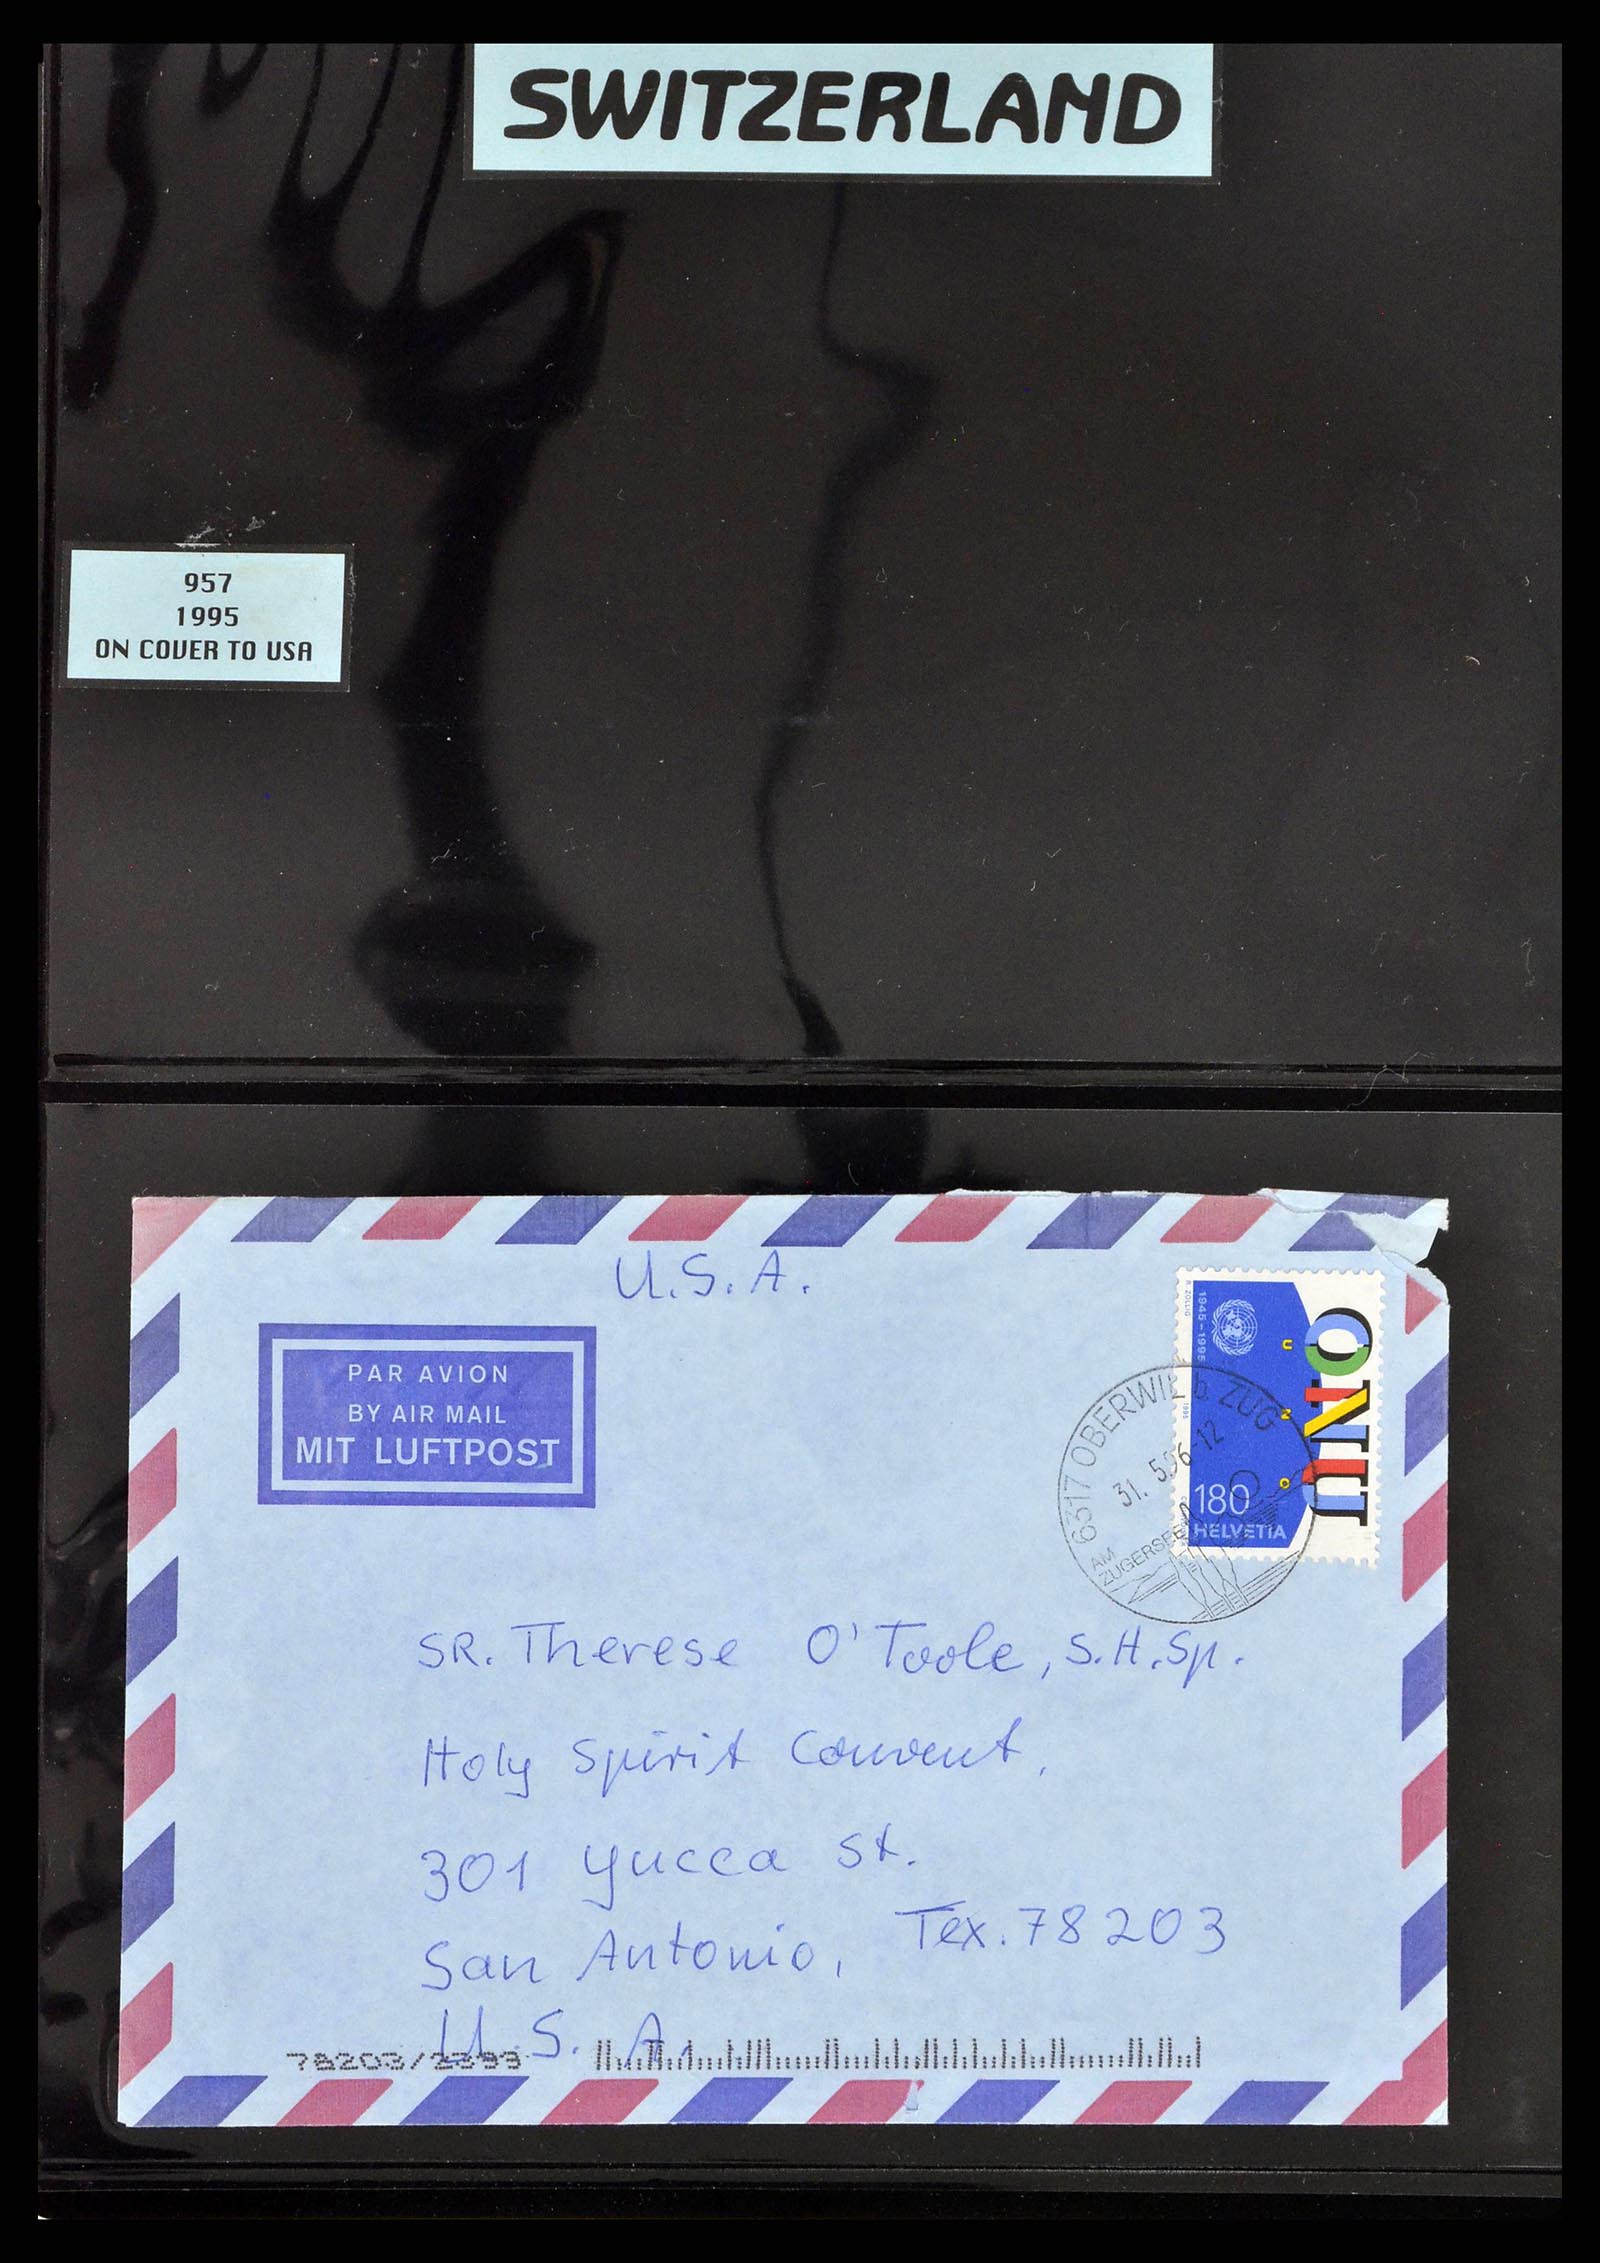 SWITZERLAND
957
1995
ON COVER TO USA
U.S.A.
PAR AVION
BY AIR MAIL
MIT LUFTPOST
R. ZÖLLIG
1945-1995
UNO
ONU
1995
180
HELVETIA
6317 OBERWIL b. ZUG
31. 5.96-12
AM
ZUGERSEE
SR. Therese O'Toole, S.H.Sp.
Holy Spirit Convent,
301 Yucca St.
San Antonio, Tex. 78203
U.S.A.
78203/2399